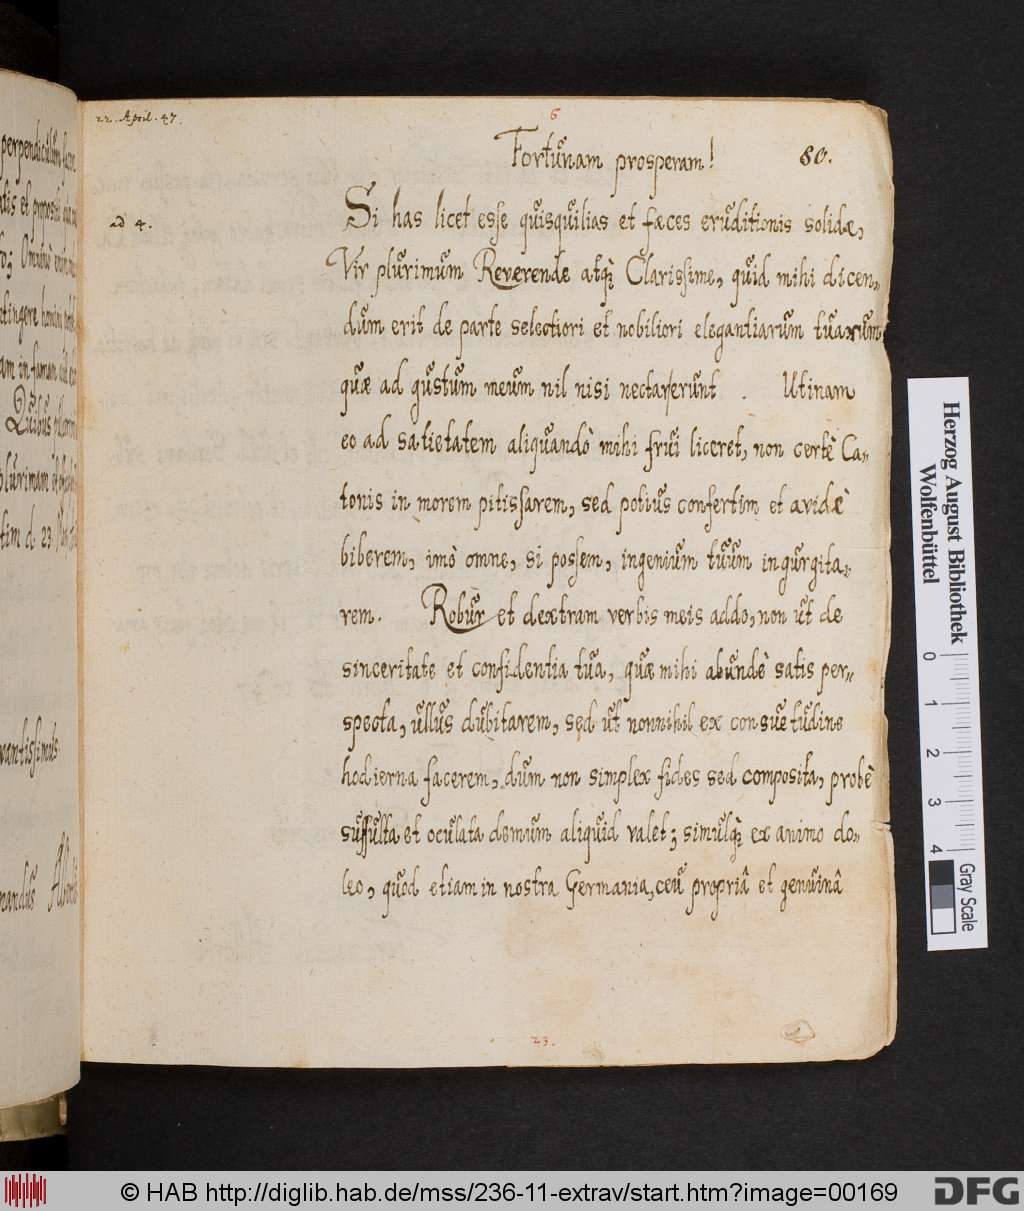 22. April. 47.
6
Fortunam prosperam!
80.
ad 4.
Si has licet esse quisquilias et fæces eruditionis solidæ,
Vir plurimum Reverende atq; Clarissime, quid mihi dicen„
dum erit de parte selectiori et nobiliori elegantiarum tuarum
quæ ad gustum meum nil nisi nectar erunt . Utinam
eo ad satietatem aliquandò mihi frui liceret, non certè Ca„
tonis in morem pitissarem, sed potius confertim et avidè
biberem, imò omne, si possem, ingenium tuum ingurgita„
rem. Robur et dextram verbis meis addo, non ut de
sinceritate et confidentia tua, quæ mihi abundè satis per„
specta, ullus dubitarem, sed ut nonnihil ex consuetudine
hodierna facerem, dum non simplex fides sed composita, probè
suffulta et oculata demum aliquid valet; simulq; ex animo do„
leo, quod etiam in nostra Germania, ceu propriâ et genuinâ
23.
Herzog August Bibliothek
Wolfenbüttel
0 1 2 3 4
Gray Scale
© HAB http://diglib.hab.de/mss/236-11-extrav/start.htm?image=00169
DFG